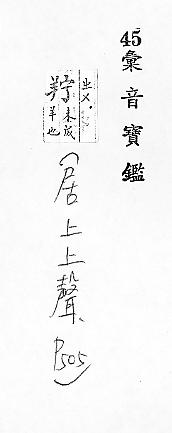 45彙音寶鑑
ㄓㄨˋ
羜 未成羊也
(居上上聲、P505)